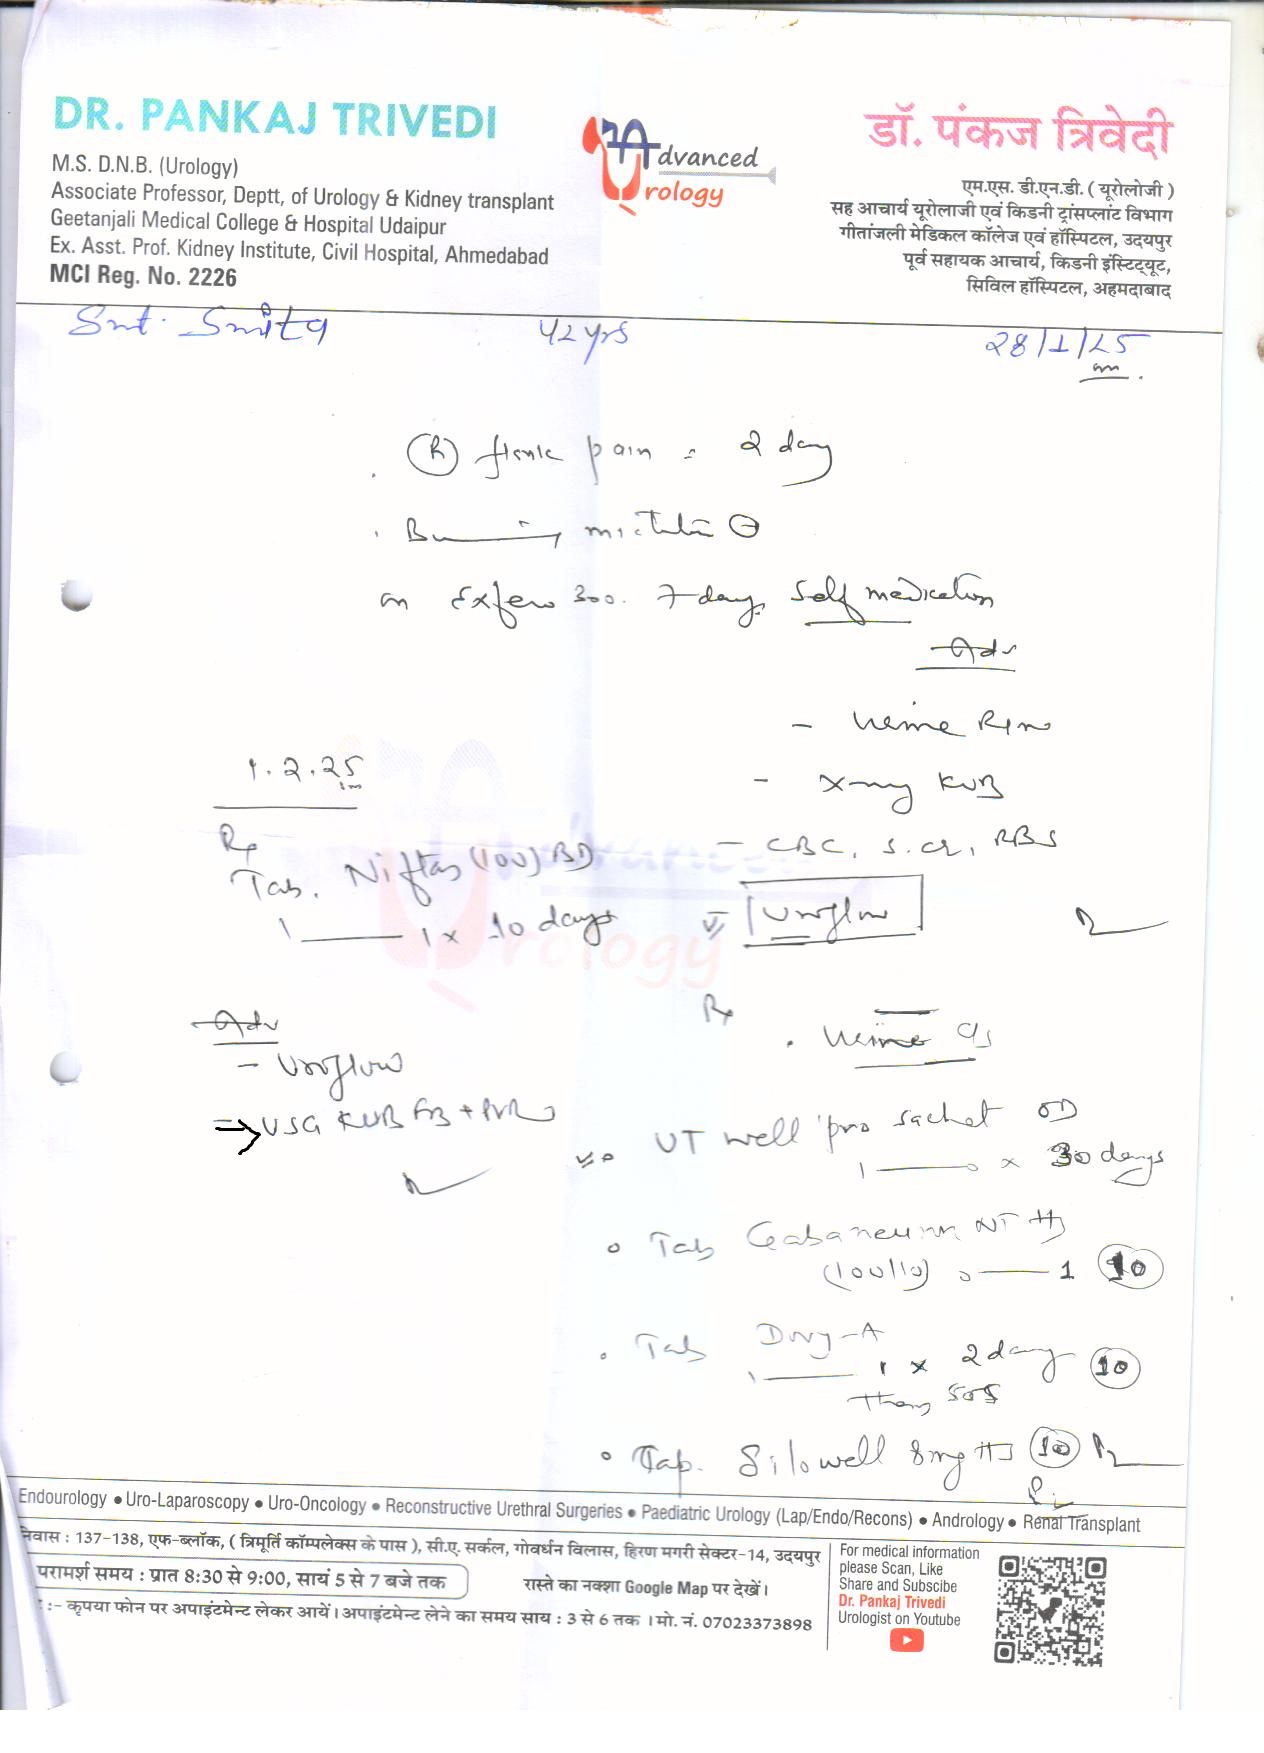 DR. PANKAJ TRIVEDI
M.S. D.N.B. (Urology)
Associate Professor, Deptt, of Urology & Kidney transplant
Geetanjali Medical College & Hospital Udaipur
Ex. Asst. Prof. Kidney Institute, Civil Hospital, Ahmedabad
MCI Reg. No. 2226
Advanced
Urology
डॉ. पंकज त्रिवेदी
एम.एस. डी.एन.बी. ( यूरोलोजी )
सह आचार्य यूरोलाजी एवं किडनी ट्रांसप्लांट विभाग
गीतांजली मेडिकल कॉलेज एवं हॉस्पिटल, उदयपुर
पूर्व सहायक आचार्य, किडनी इंस्टिट्यूट,
सिविल हॉस्पिटल, अहमदाबाद
Smt. Smita 42 yrs 28/1/25
(R) flank pain 2 day
Burning
on 300. 7 days self medication
Adv
- Urine
- X-ray KUB
- CBC, S.cr, RBS
Uroflow
Rx
. Urine C/S
UT well pro sachet OD
1 — 0 x 30 days
Tab Gabaneuron NT HS
(100/10) 0 — 1 10
Tab
1 — 1 x 2 day 10
SOS
Silowell 8mg HS 10
1.2.25
Rx
Tab. Niftas (100) BD
1 — 1 x 10 days
Adv
- Uroflow
USG KUB + PVR
Endourology ● Uro-Laparoscopy ● Uro-Oncology ● Reconstructive Urethral Surgeries ● Paediatric Urology (Lap/Endo/Recons) ● Andrology ● Renal Transplant
निवास : 137-138, एफ-ब्लॉक, ( त्रिमूर्ति कॉम्पलेक्स के पास ), सी.ए. सर्कल, गोवर्धन विलास, हिरण मगरी सेक्टर-14, उदयपुर
परामर्श समय : प्रात 8:30 से 9:00, सायं 5 से 7 बजे तक रास्ते का नक्शा Google Map पर देखें।
:- कृपया फोन पर अपाइंटमेन्ट लेकर आयें। अपाइंटमेन्ट लेने का समय साय : 3 से 6 तक । मो. नं. 07023373898
For medical information
please Scan, Like
Share and Subscibe
Dr. Pankaj Trivedi
Urologist on Youtube